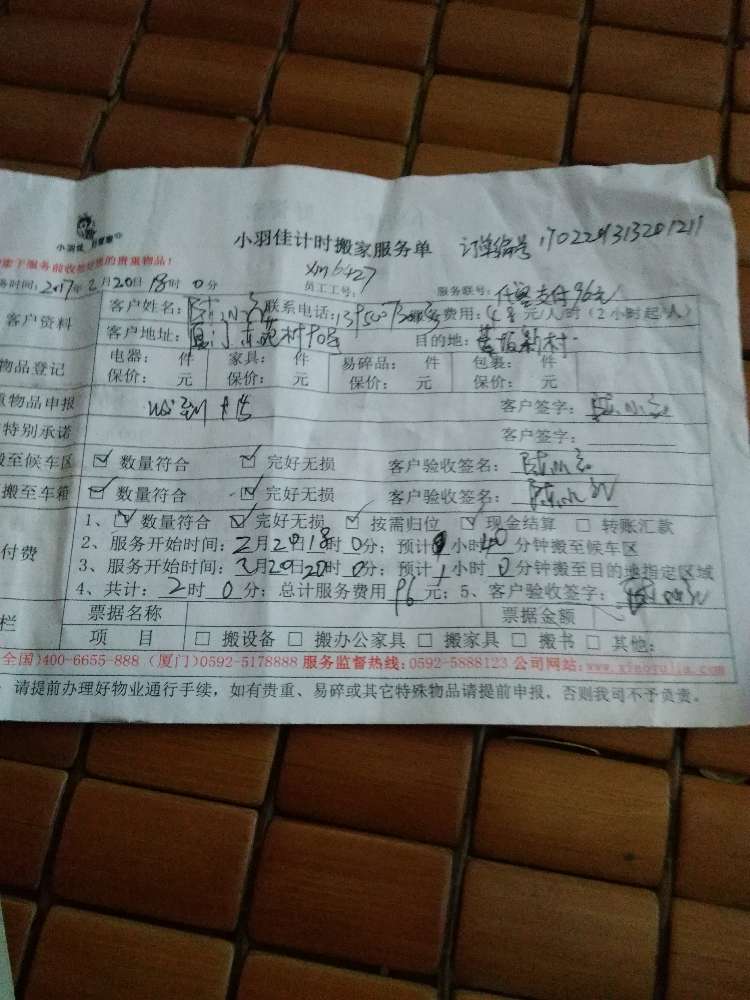 小羽佳
小羽佳计时搬家服务单 订单编号
服务前收拾好您的贵重物品!
务时间:2017年2月20日18时0分 员工工号: xm6427 服务联号: 支付96元
客户资料 客户姓名: 联系电话: 费用: 元/人/时(2小时起/人)
客户地址:厦门 村 号 目的地: 新村
物品登记 电器: 件 家具: 件 易碎品: 件 包装: 件
保价: 元 保价: 元 保价: 元 保价: 元
重物品申报 客户签字:
特别承诺 客户签字:
搬至候车区 ☑ 数量符合 ☑ 完好无损 客户验收签名:
搬至车箱 ☑ 数量符合 ☑ 完好无损 客户验收签名:
1、☑ 数量符合 ☑ 完好无损 ☑ 按需归位 ☑ 现金结算 □ 转账汇款
付费 2、服务开始时间:2月20日18时0分;预计 小时40分钟搬至候车区
3、服务开始时间:2月20日20时0分;预计1小时0分钟搬至目的地指定区域
4、共计:2时0分;总计服务费用96元;5、客户验收签字:
栏 票据名称 票据金额
项 目 □ 搬设备 □ 搬办公家具 □ 搬家具 □ 搬书 □ 其他:
全国)400-6655-888 (厦门)0592-5178888 服务监督热线:0592-5888123 公司网站:www.xiaoyujia.com
请提前办理好物业通行手续,如有贵重、易碎或其它特殊物品请提前申报,否则我司不予负责。